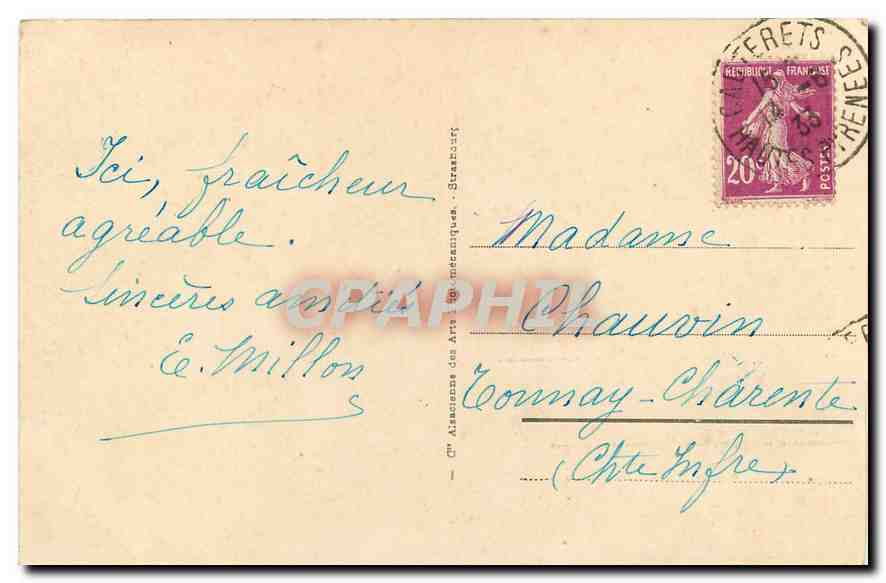 Ici, fraîcheur
agréable.
Sincères amitiés
E. Millon
Cie Alsacienne des Arts Photomécaniques. - Strasbourg
CPAPHIL
CAUTERETS
HAUTES PYRENEES
33
REPUBLIQUE FRANÇAISE
20c
POSTES
Madame
Chauvin
Tonnay-Charente
(Chte Infre)